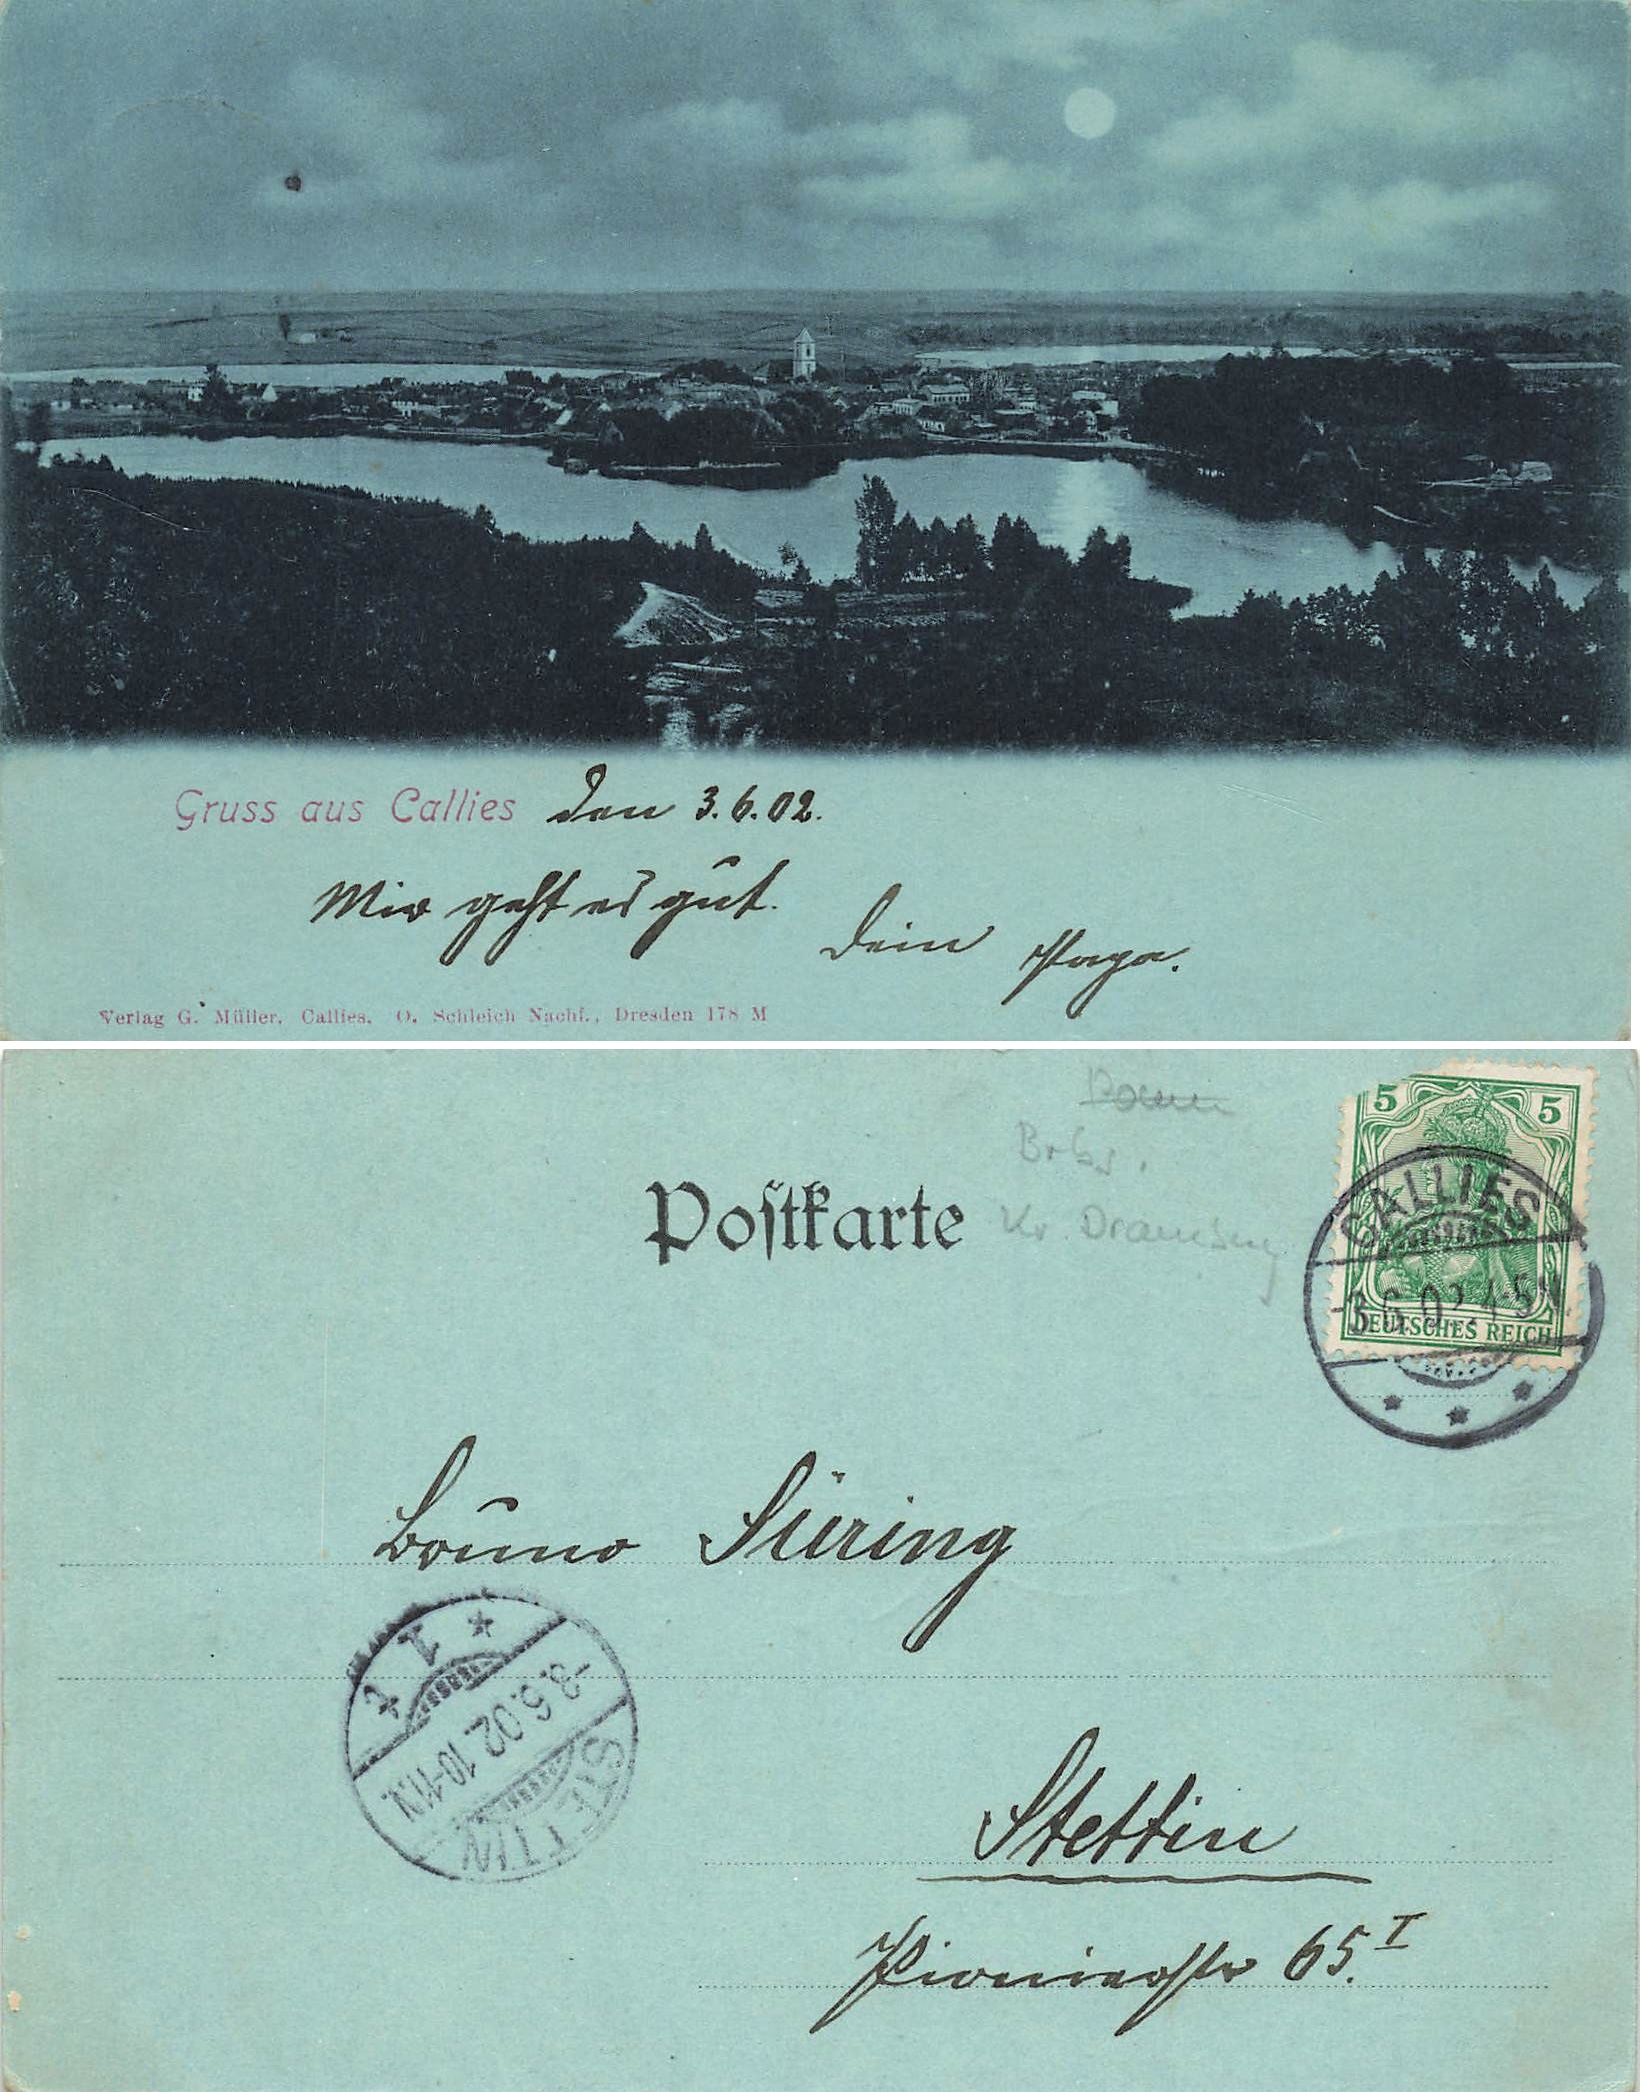 Gruss aus Callies den 3.6.02.
Mir geht es gut.
Dein Papa.
Verlag G. Müller, Callies. O. Schleich Nachf., Dresden 178 M
Postkarte
Kr. Dramburg
5 5
DEUTSCHES REICH
CALLIES
-3.6.02. 4-5 N.
Bruno Süring
STETTIN
-3.6.02. 10-11 N.
* 1 t
Stettin
Pionierstr 65. I